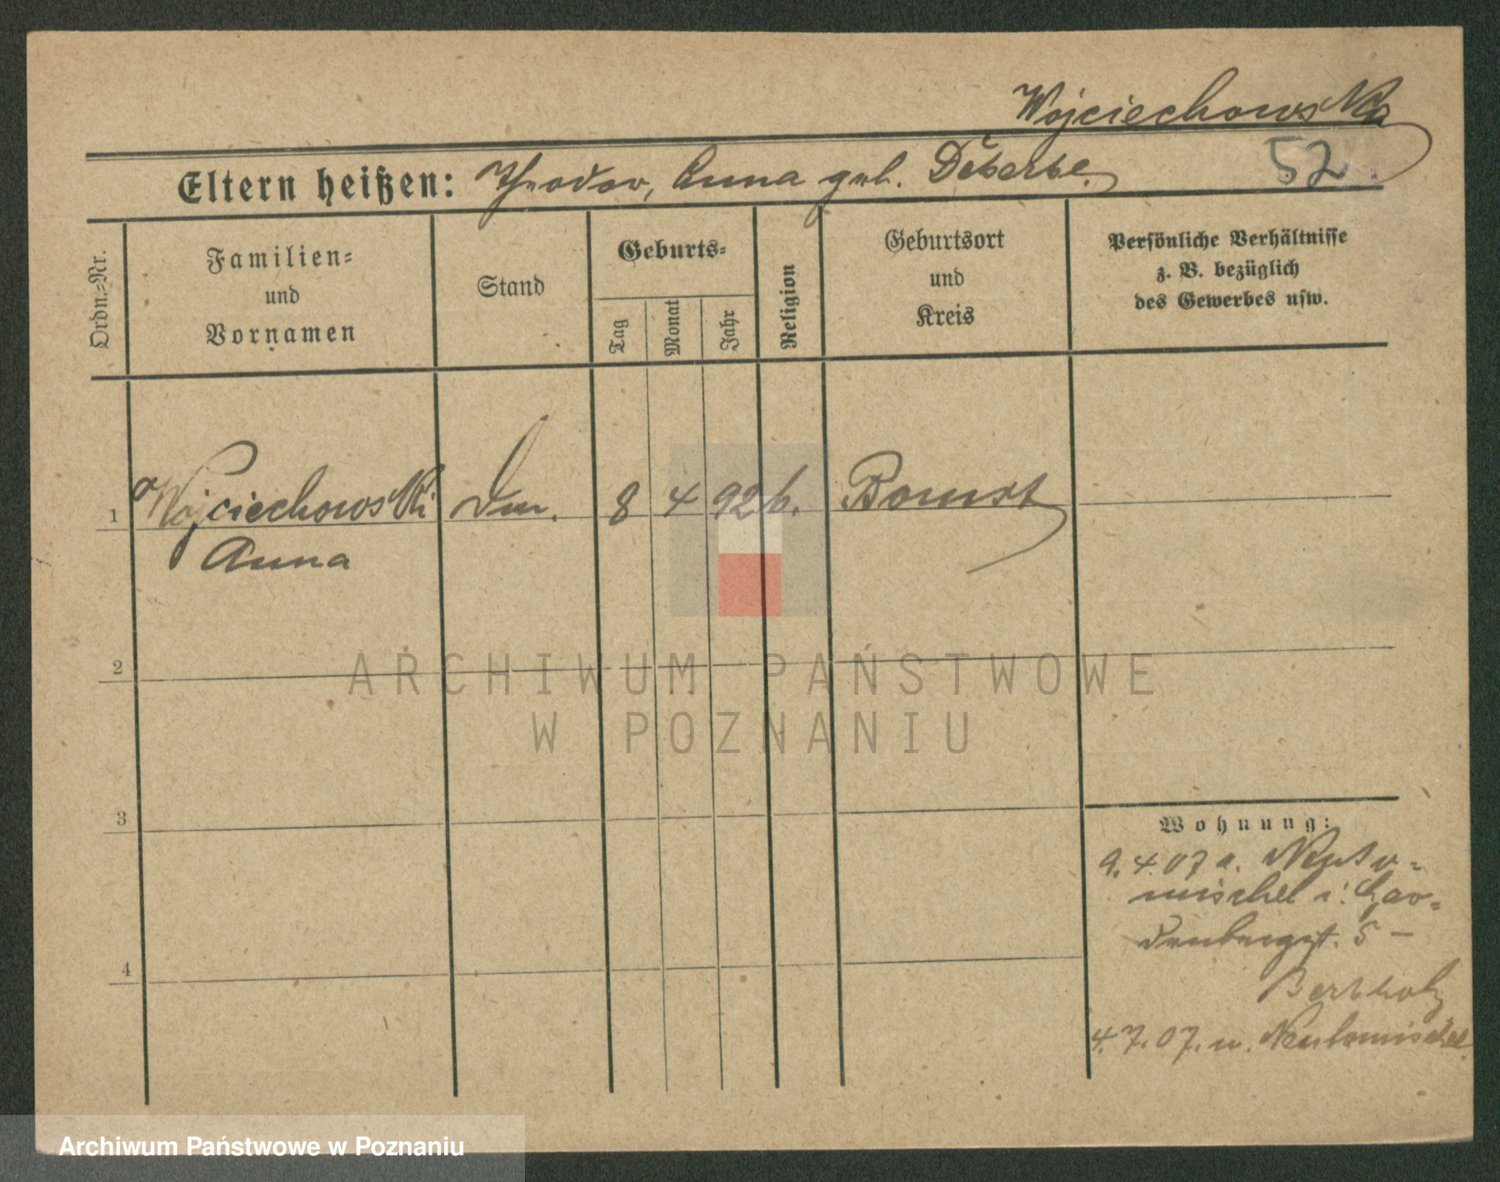 Wojciechowska
Eltern heißen: Theodor, Anna geb.
52
Ordn.-Nr.
Familien-
und
Vornamen
Stand
Geburts-
Tag
Monat
Jahr
Religion
Geburtsort
und
Kreis
Persönliche Verhältnisse
z. B. bezüglich
des Gewerbes usw.
1
Wojciechowski
8 4 92
Bomst
Anna
2
ARCHIWUM PAŃSTWOWE
W POZNANIU
3
Wohnung:
9.4.07 a.
mischel i.
5 –
4
4.7.07. n. Neutomischel
Archiwum Państwowe w Poznaniu